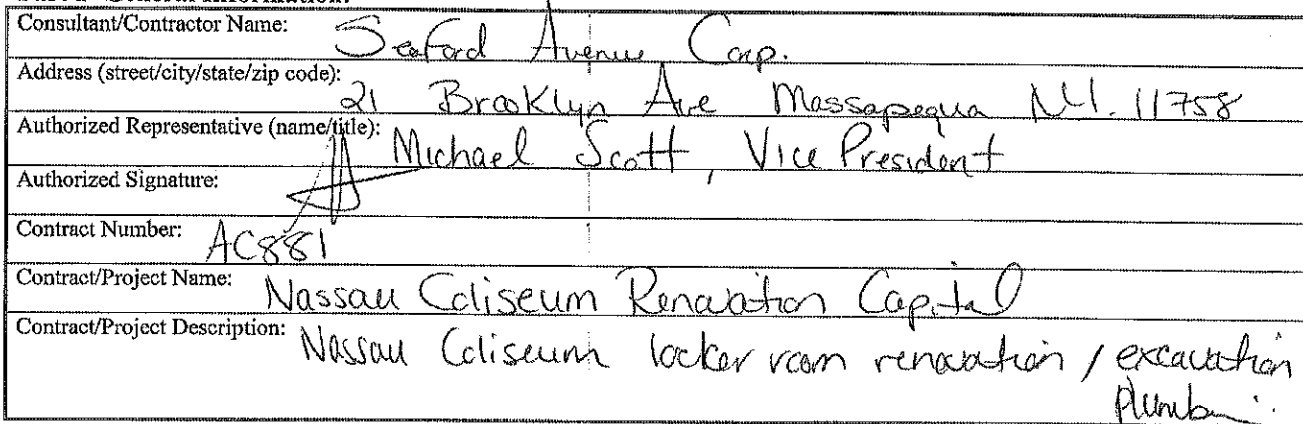 Consultant/Contractor Name: Seaford Avenue Corp.
Address (street/city/state/zip code): 21 Brooklyn Ave Massapequa N.Y. 11758
Authorized Representative (name/title): Michael Scott, Vice President
Authorized Signature:
Contract Number: AC881
Contract/Project Name: Nassau Coliseum Renovation Capital
Contract/Project Description: Nassau Coliseum locker room renovation / excavation